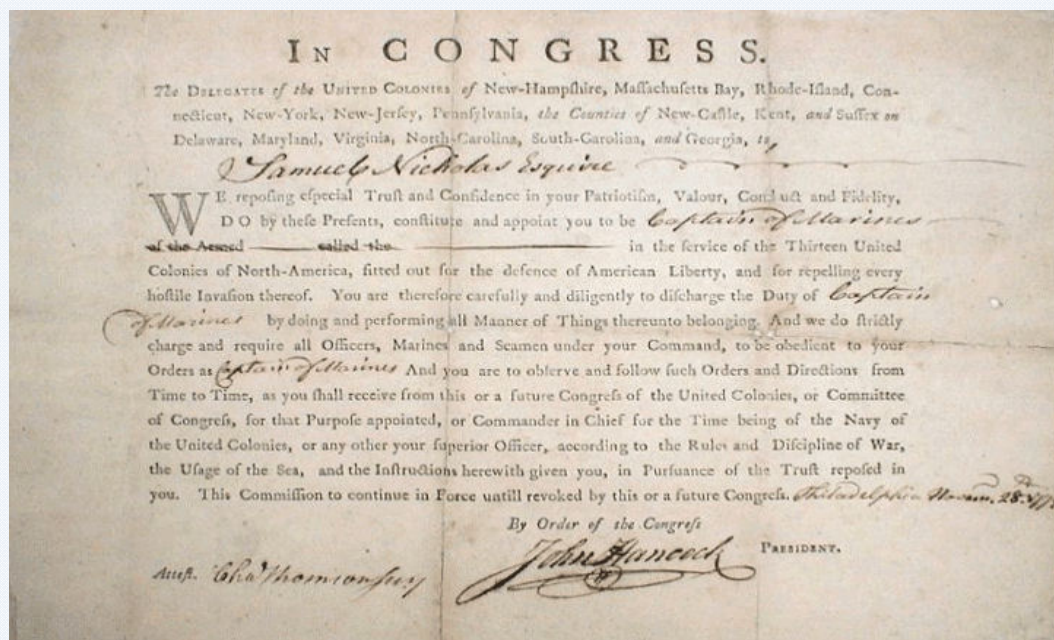 IN CONGRESS.
The DELEGATES of the UNITED COLONIES of New-Hampſhire, Maſſachuſetts Bay, Rhode-Iſland, Con-
necticut, New-York, New-Jerſey, Pennſylvania, the Counties of New-Caſtle, Kent, and Suſſex on
Delaware, Maryland, Virginia, North-Carolina, South-Carolina, and Georgia, to,
Samuel Nicholas Esquire
WE repoſing eſpecial Truſt and Confidence in your Patriotiſm, Valour, Conduct and Fidelity,
DO by theſe Preſents, conſtitute and appoint you to be Captain of Marines
of the Armed called the in the ſervice of the Thirteen United
Colonies of North-America, fitted out for the defence of American Liberty, and for repelling every
hoſtile Invaſion thereof. You are therefore carefully and diligently to diſcharge the Duty of Captain
of Marines by doing and performing all Manner of Things thereunto belonging. And we do ſtrictly
charge and require all Officers, Marines and Seamen under your Command, to be obedient to your
Orders as Captain of Marines And you are to obſerve and follow ſuch Orders and Directions from
Time to Time, as you ſhall receive from this or a future Congreſs of the United Colonies, or Committee
of Congreſs, for that Purpoſe appointed, or Commander in Chief for the Time being of the Navy of
the United Colonies, or any other your ſuperior Officer, according to the Rules and Diſcipline of War,
the Uſage of the Sea, and the Inſtructions herewith given you, in Purſuance of the Truſt repoſed in
you. This Commiſſion to continue in Force untill revoked by this or a future Congreſs. Philadelphia Novem. 28th
By Order of the Congreſs
John Hancock PRESIDENT.
Atteſt. Cha Thomson ſecy